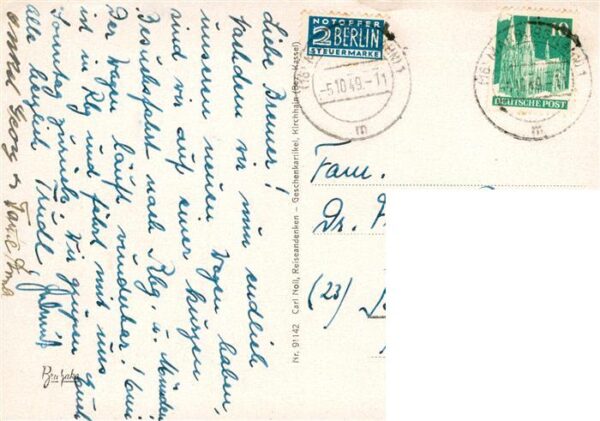 Liebe Bremer!
Nachdem wir nun endlich
unseren neuen Wagen haben,
sind wir auf einer kurzen
Besuchsfahrt nach Rbg. u. München
Der Wagen läuft wunderbar! Omi
ist in Rbg und fährt mit uns
Sonntag zurück. Wir grüßen Euch
alle herzlich Trudl
Georg u. Fam.
NOTOPFER
2 BERLIN
STEUERMARKE
-5.10.49.-11
m
10
DEUTSCHE POST
49
m
Fam.
Dr.
(23)
Nr. 91142 Carl Noll, Reiseandenken – Geschenkartikel, Kirchhain (Bez. Kassel)